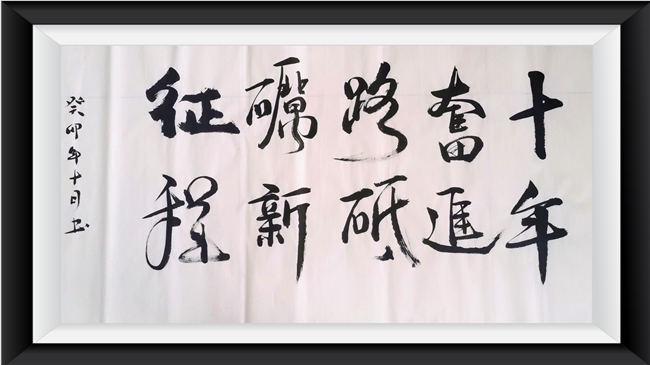 十年
奮進
路砥
礪新
征程
癸卯年十月书